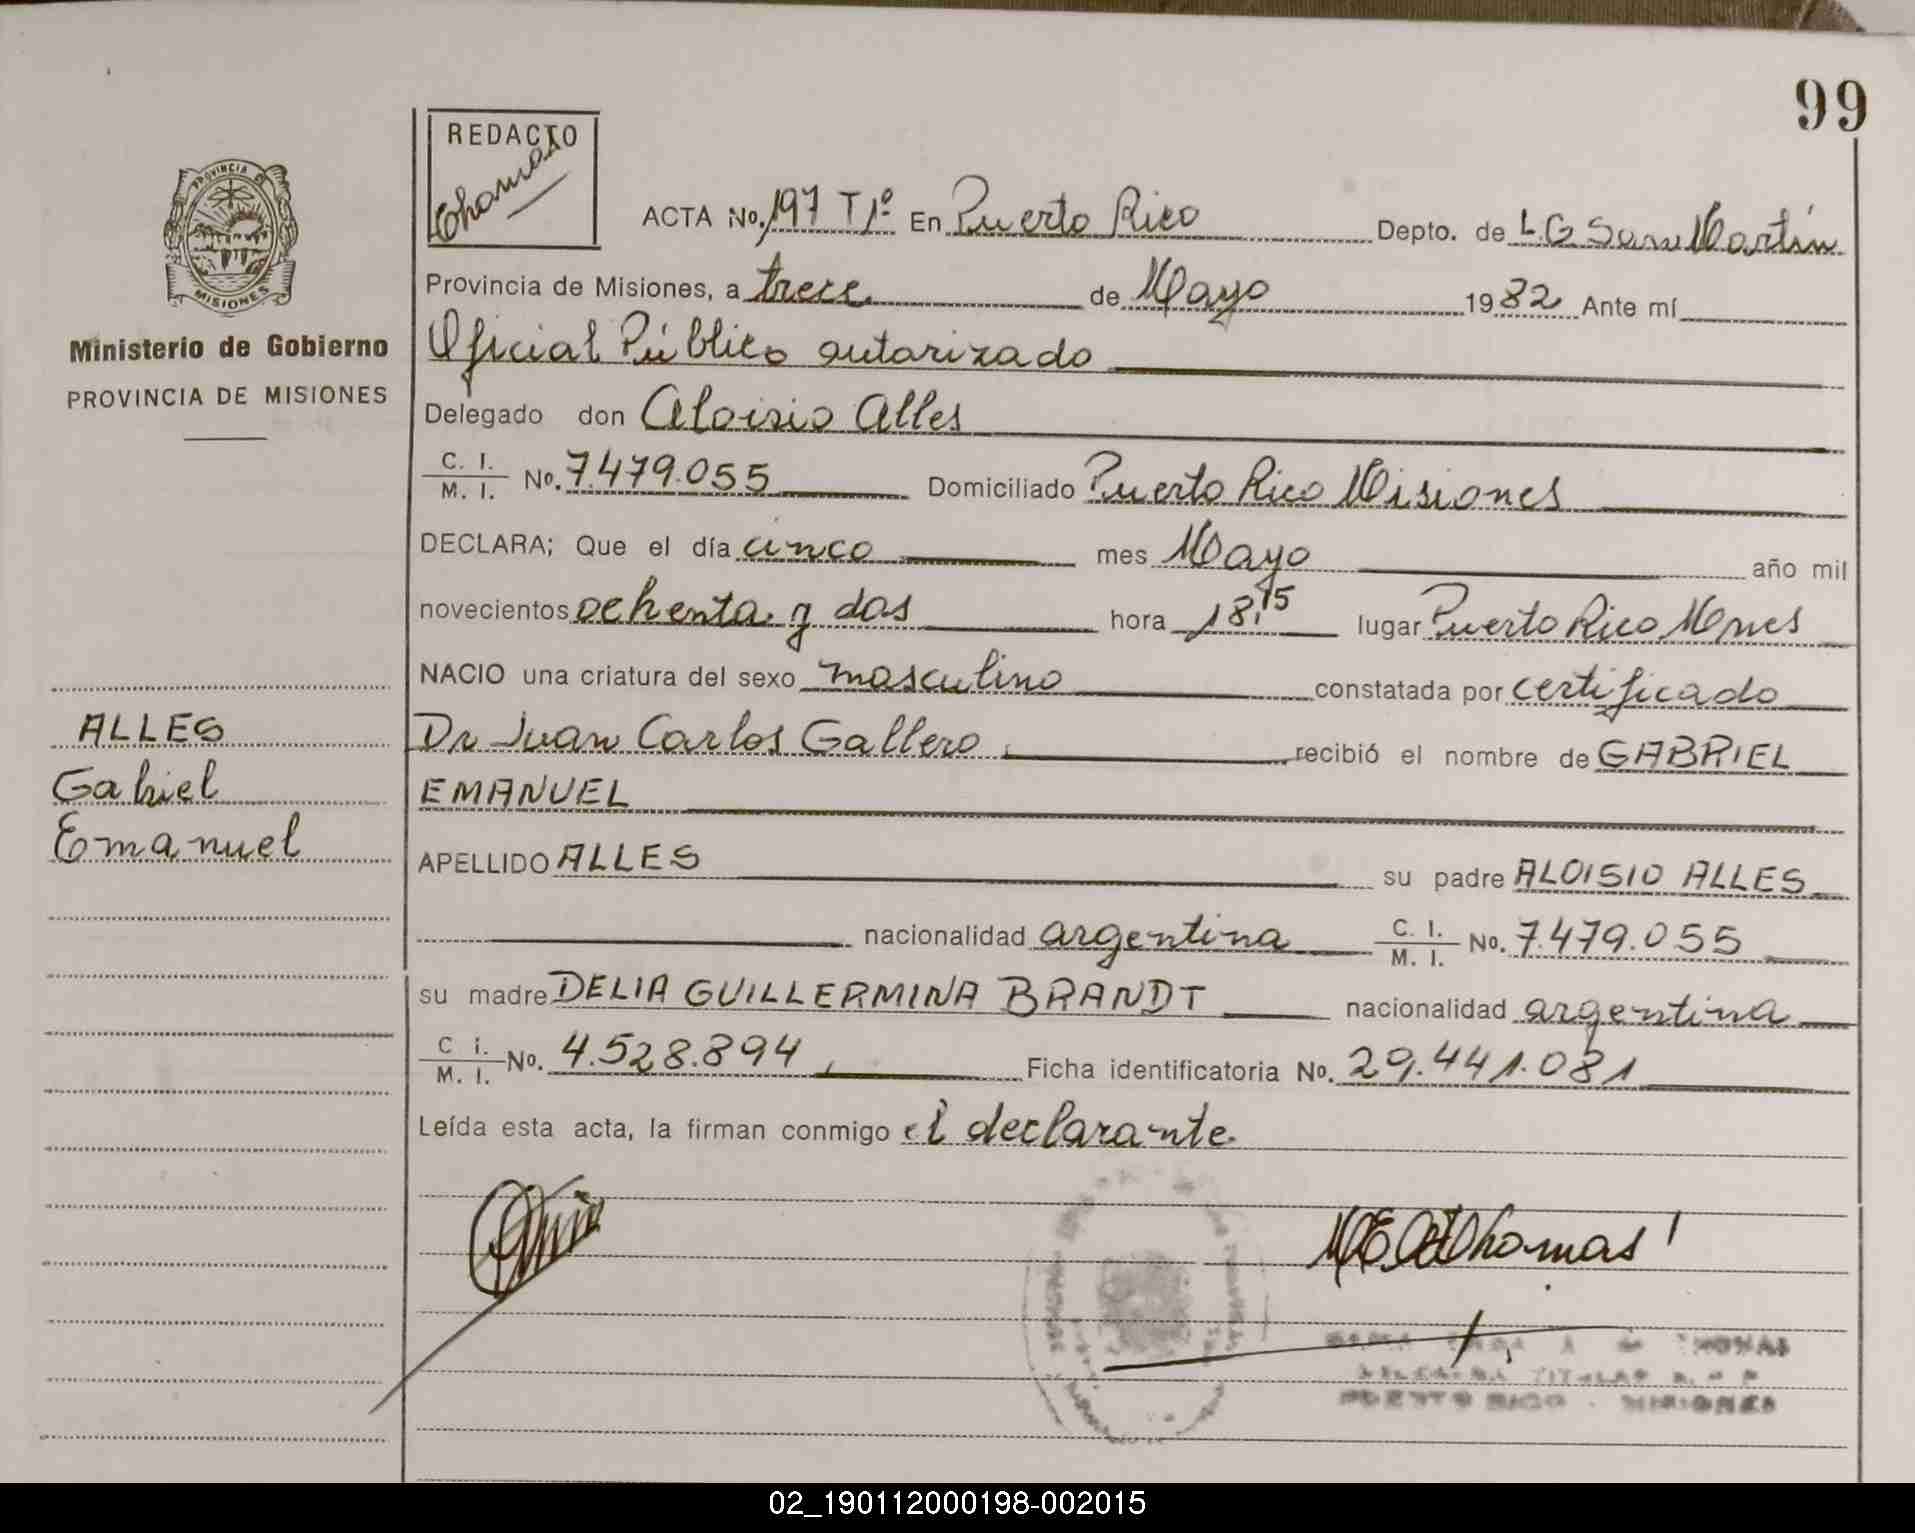 99
REDACTO
Thomas
PROVINCIA DE
MISIONES
Ministerio de Gobierno
PROVINCIA DE MISIONES
ACTA No. 197 T1º En Puerto Rico Depto. de L G San Martín
Provincia de Misiones, a trece de Mayo 1982 Ante mí
Oficial Público autorizado
Delegado don Aloisio Alles
C. I.
M. I. No. 7.479.055 Domiciliado Puerto Rico Misiones
DECLARA; Que el día cinco mes Mayo año mil
novecientos ochenta y dos hora 18,15 lugar Puerto Rico Mnes
NACIO una criatura del sexo masculino constatada por certificado
ALLES
Gabriel
Emanuel
Dr Juan Carlos Gallero, recibió el nombre de GABRIEL
EMANUEL
APELLIDO ALLES su padre ALOISIO ALLES
nacionalidad argentina C. I.
M. I. No. 7.479.055
su madre DELIA GUILLERMINA BRANDT nacionalidad argentina
C i.
M. I. No. 4.528.894, Ficha identificatoria No. 29.441.081
Leída esta acta, la firman conmigo el declarante.
Thomas
THOMAS
TITULAR
PUERTO RICO - MISIONES
02_190112000198-002015